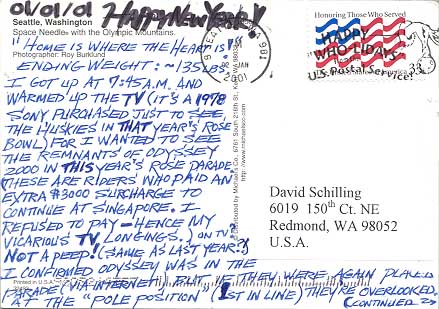 01/01/01 Happy New Year!!
Seattle, Washington
Space Needle with the Olympic Mountains.
Photographer: Roy Burklund
"HOME IS WHERE THE HEART IS"
ENDING WEIGHT: ~135LBS.
I GOT UP AT 7:45A.M. AND
WARMED UP THE TV (IT'S A 1978
SONY PURCHASED JUST TO SEE
THE HUSKIES IN THAT YEAR'S ROSE
BOWL) FOR I WANTED TO SEE
THE REMNANTS OF ODYSSEY
2000 IN THIS YEAR'S ROSE PARADE
(THESE ARE RIDERS WHO PAID AN
EXTRA $3000 SURCHARGE TO
CONTINUE AT SINGAPORE. I
REFUSED TO PAY - HENCE MY
VICARIOUS TV LONGINGS.) ON TV?
NOT A PEEP! (SAME AS LAST YEAR?)
I CONFIRMED ODYSSEY WAS IN THE
PARADE (VIA INTERNET) BUT IF THEY WERE AGAIN PLACED
AT THE "POLE POSITION" (1ST IN LINE) THEY'RE OVERLOOKED.
(CONTINUED 2)
Printed in U.S.A.
Distributed by Michaels Co. 6761 South 216th St., Kent, WA 98032
http://www.michaelsco.com
SEATTLE
981
JAN
2001
Honoring Those Who Served
HAPPY
WHO-LIDAYS
U.S. Postal Service
33
David Schilling
6019 150th Ct. NE
Redmond, WA 98052
U.S.A.